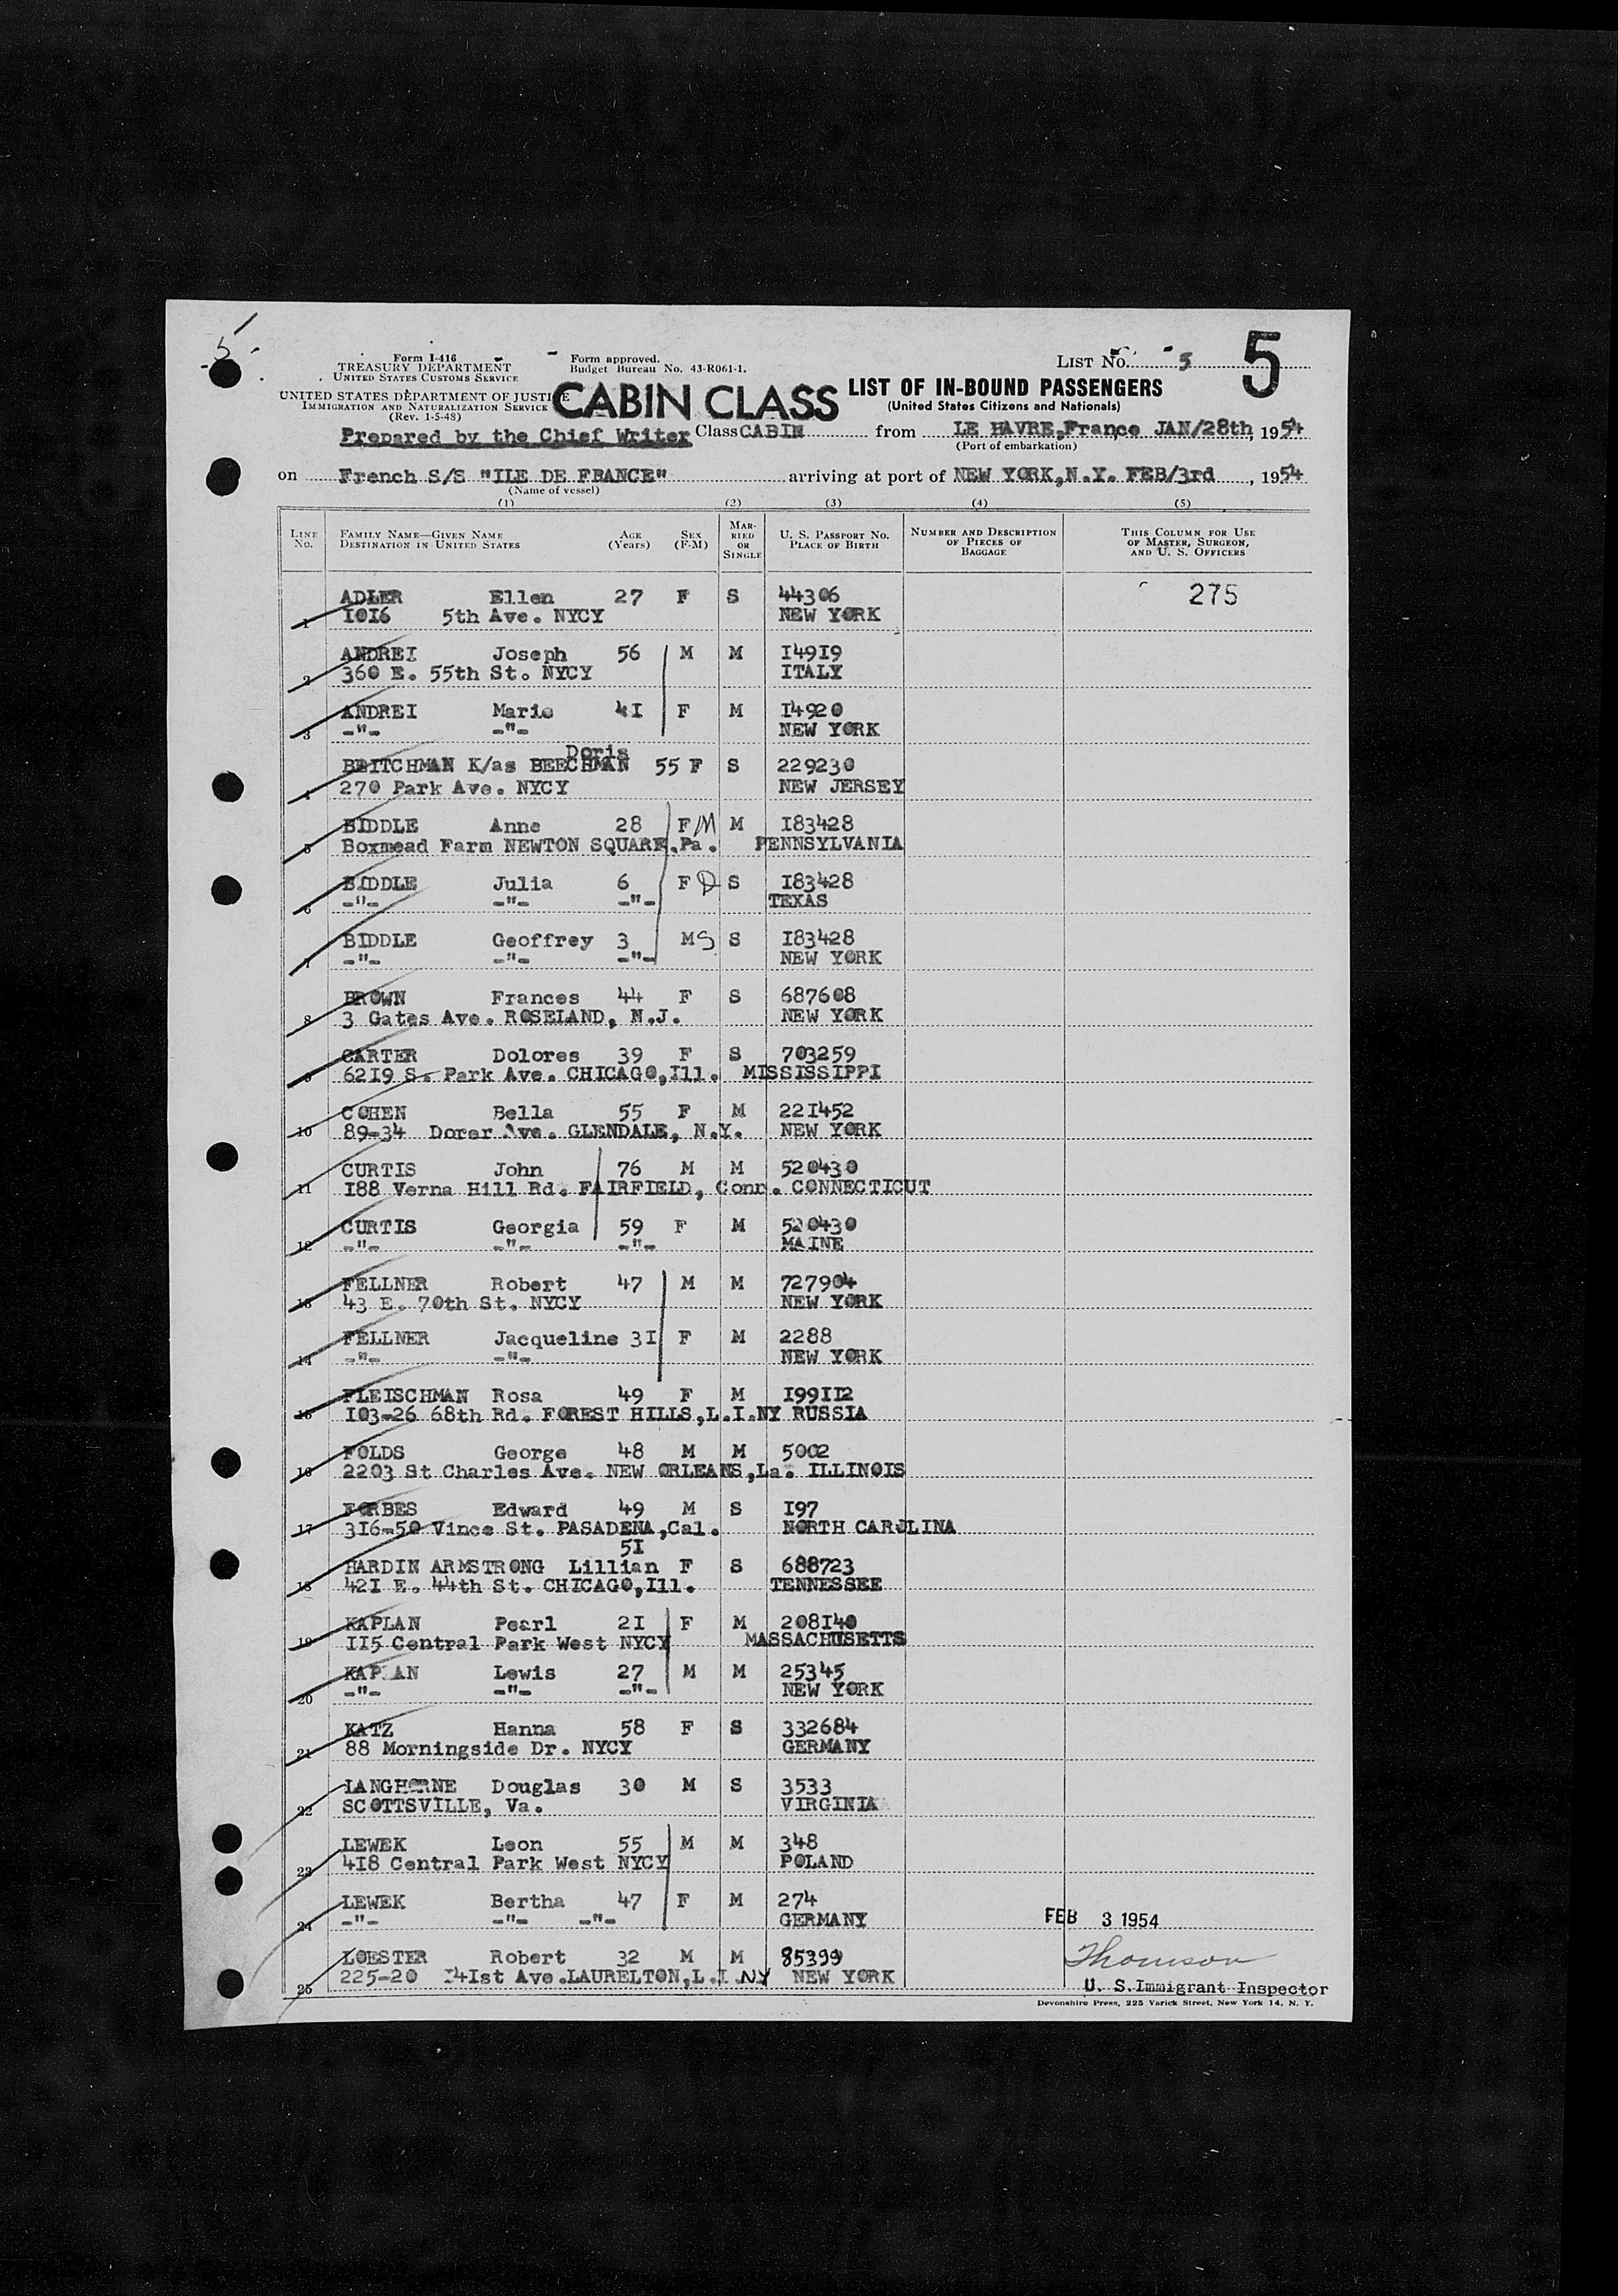 5
Form I-416
TREASURY DEPARTMENT
UNITED STATES CUSTOMS SERVICE
Form approved.
Budget Bureau No. 43-R061-1.
LIST No. 5
5
UNITED STATES DEPARTMENT OF JUSTICE
IMMIGRATION AND NATURALIZATION SERVICE
(Rev. 1-5-48)
CABIN CLASS
LIST OF IN-BOUND PASSENGERS
(United States Citizens and Nationals)
Prepared by the Chief Writer Class CABIN from LE HAVRE,France JAN/28th, 1954
(Port of embarkation)
on French S/S "ILE DE FRANCE" arriving at port of NEW YORK,N.Y. FEB/3rd, 1954
(Name of vessel)
(1) (2) (3) (4) (5)
LINE No. FAMILY NAME—GIVEN NAME DESTINATION IN UNITED STATES AGE (Years) SEX (F-M) MARRIED OR SINGLE U. S. PASSPORT NO. PLACE OF BIRTH NUMBER AND DESCRIPTION OF PIECES OF BAGGAGE THIS COLUMN FOR USE OF MASTER, SURGEON, AND U. S. OFFICERS
ADLER Ellen 27 F S 44306 275
1 1016 5th Ave. NYCY NEW YORK
ANDREI Joseph 56 M M 14919
2 360 E. 55th St. NYCY ITALY
ANDREI Marie 41 F M 14920
3 -"- -"- NEW YORK
Doris
BRITCHMAN K/as BEECHMAN 55 F S 229230
4 270 Park Ave. NYCY NEW JERSEY
BIDDLE Anne 28 F M M 183428
5 Boxmead Farm NEWTON SQUARE.Pa. PENNSYLVANIA
BIDDLE Julia 6 F D S 183428
6 -"- -"- -"- TEXAS
BIDDLE Geoffrey 3 M S S 183428
7 -"- -"- -"- NEW YORK
BROWN Frances 44 F S 687608
8 3 Gates Ave. ROSELAND, N.J. NEW YORK
CARTER Dolores 39 F S 703259
9 6219 S. Park Ave. CHICAGO,Ill. MISSISSIPPI
COHEN Bella 55 F M 221452
10 89-34 Dorer Ave. GLENDALE, N.Y. NEW YORK
CURTIS John 76 M M 520430
11 188 Verna Hill Rd. FAIRFIELD, Conn. CONNECTICUT
CURTIS Georgia 59 F M 520430
12 -"- -"- -"- MAINE
FELLNER Robert 47 M M 727904
13 43 E. 70th St. NYCY NEW YORK
FELLNER Jacqueline 31 F M 2288
14 -"- -"- NEW YORK
FLEISCHMAN Rosa 49 F M 199112
15 103-26 68th Rd. FOREST HILLS,L.I.NY RUSSIA
FOLDS George 48 M M 5002
16 2203 St Charles Ave. NEW ORLEANS,La. ILLINOIS
FORBES Edward 49 M S 197
17 316-50 Vince St. PASADENA,Cal. NORTH CAROLINA
51
HARDIN ARMSTRONG Lillian F S 688723
18 421 E. 44th St. CHICAGO,Ill. TENNESSEE
KAPLAN Pearl 21 F M 208140
19 115 Central Park West NYCY MASSACHUSETTS
KAPLAN Lewis 27 M M 25345
20 -"- -"- -"- NEW YORK
KATZ Hanna 58 F S 332684
21 88 Morningside Dr. NYCY GERMANY
LANGHORNE Douglas 30 M S 3533
22 SCOTTSVILLE, Va. VIRGINIA
LEWEK Leon 55 M M 348
23 418 Central Park West NYCY POLAND
LEWEK Bertha 47 F M 274
24 -"- -"- -"- GERMANY FEB 3 1954
LOESTER Robert 32 M M 85399 Thomson
25 225-20 141st Ave.LAURELTON,L.I.NY NEW YORK U. S.Immigrant Inspector
Devonshire Press, 225 Varick Street, New York 14, N. Y.